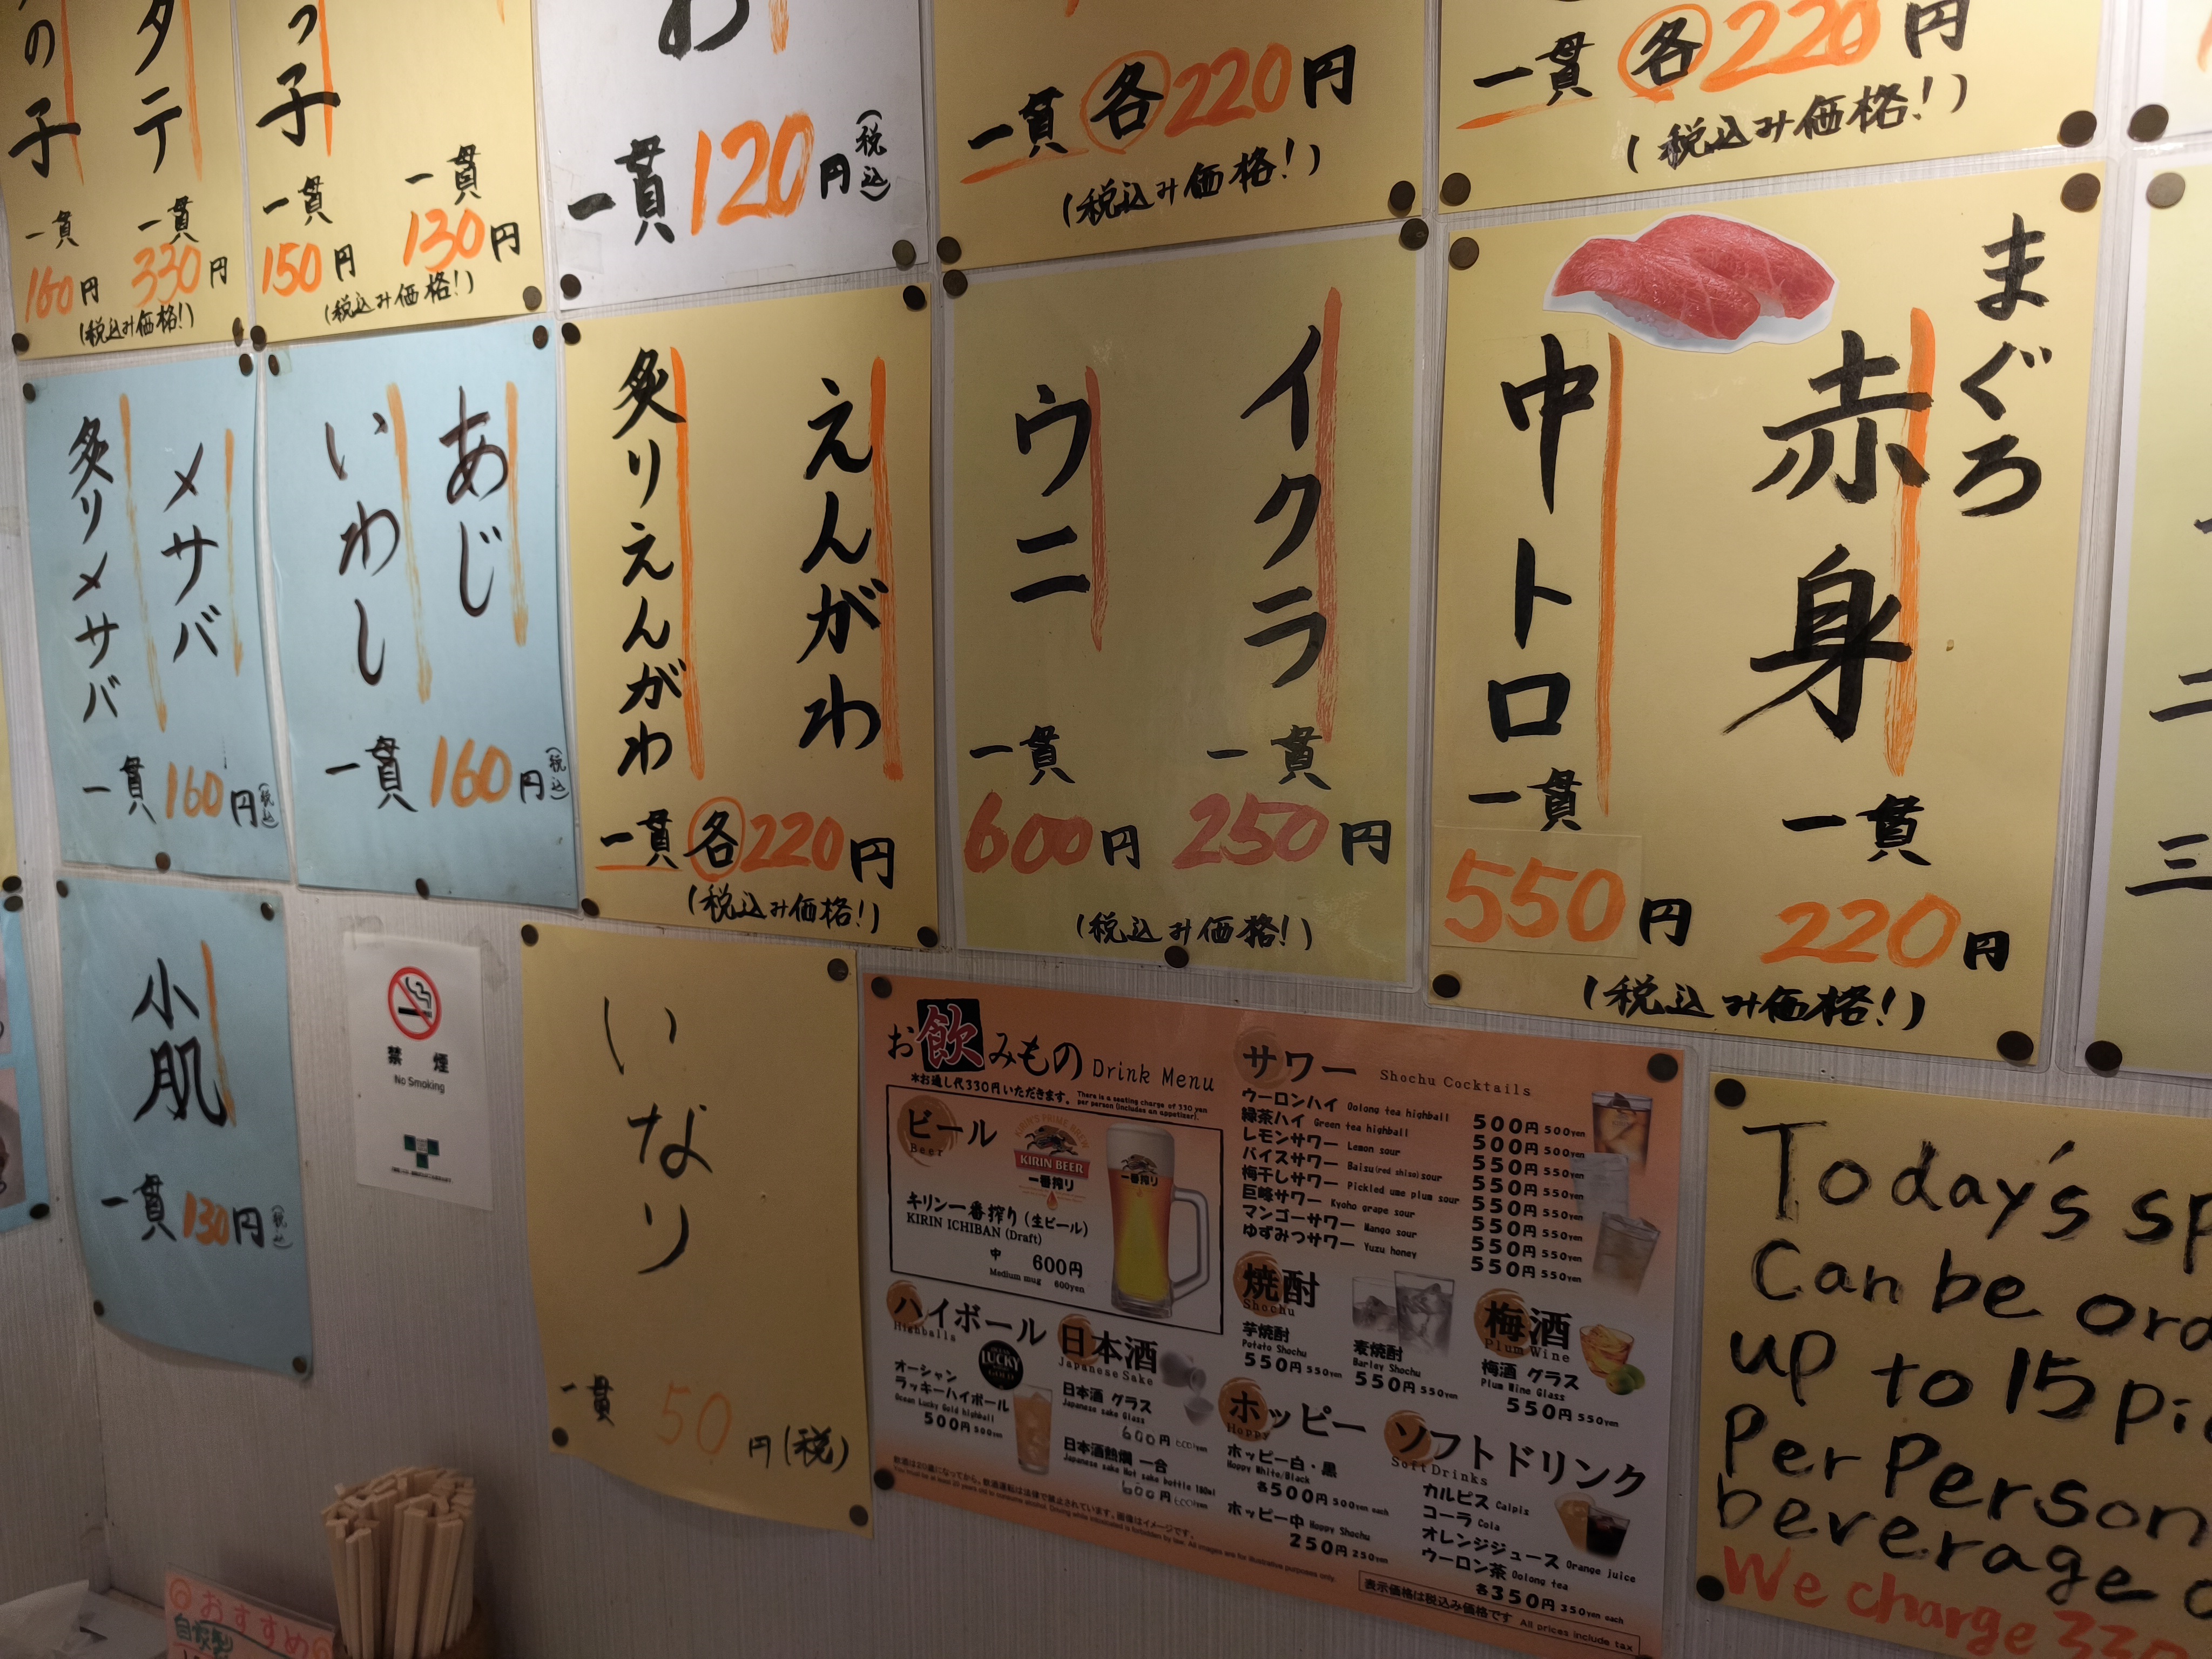 の子
一貫
160円
タテ
一貫
330円
(税込み価格!)
っ子
一貫
150円
一貫
130円
(税込み価格!)
わ
一貫 120円(税込)
一貫 各220円
(税込み価格!)
一貫 各220円
(税込み価格!)
まぐろ
赤身
一貫
220円
中トロ
一貫
550円
(税込み価格!)
イクラ
一貫
250円
ウニ
一貫
600円
(税込み価格!)
えんがわ
炙りえんがわ
一貫 各220円
(税込み価格!)
あじ
いわし
一貫 160円(税込)
〆サバ
炙り〆サバ
一貫 160円(税込)
小肌
一貫 130円(税込)
禁煙
No Smoking
いなり
一貫 50円(税)
二
三
お飲みもの Drink Menu
*お通し代330円いただきます。 There is a seating charge of 330 yen per person (includes an appetizer).
ビール
Beer
KIRIN'S PRIME BREW
KIRIN BEER
一番搾り
一番搾り
キリン一番搾り(生ビール)
KIRIN ICHIBAN (Draft)
中 600円
Medium mug 600yen
ハイボール
Highballs
LUCKY
GOLD
オーシャン
ラッキーハイボール
Ocean Lucky Gold highball
500円 500yen
日本酒
Japanese Sake
日本酒 グラス
Japanese sake Glass
600円 600yen
日本酒熱燗 一合
Japanese sake Hot sake bottle 180ml
600円 600yen
サワー Shochu Cocktails
ウーロンハイ Oolong tea highball 500円 500yen
緑茶ハイ Green tea highball 500円 500yen
レモンサワー Lemon sour 550円 550yen
バイスサワー Baisu(red shiso)sour 550円 550yen
梅干しサワー Pickled ume plum sour 550円 550yen
巨峰サワー Kyoho grape sour 550円 550yen
マンゴーサワー Mango sour 550円 550yen
ゆずみつサワー Yuzu honey 550円 550yen
焼酎
Shochu
芋焼酎
Potato Shochu
550円 550yen
麦焼酎
Barley Shochu
550円 550yen
梅酒
Plum Wine
梅酒 グラス
Plum Wine Glass
550円 550yen
ホッピー
Hoppy
ホッピー白・黒
Hoppy White/Black
各500円 500yen each
ホッピー中 Hoppy Shochu
250円 250yen
ソフトドリンク
Soft Drinks
カルピス Calpis
コーラ Cola
オレンジジュース Orange juice
ウーロン茶 Oolong tea
各350円 350yen each
飲酒は20歳になってから。飲酒運転は法律で禁止されています。画像はイメージです。
You must be at least 20 years old to consume alcohol. Driving while intoxicated is forbidden by law. All images are for illustrative purposes only.
表示価格は税込み価格です All prices include tax
Today's sp
Can be ord
up to 15 pi
Per Person
beverage o
We charge 330
おすすめ
自家製